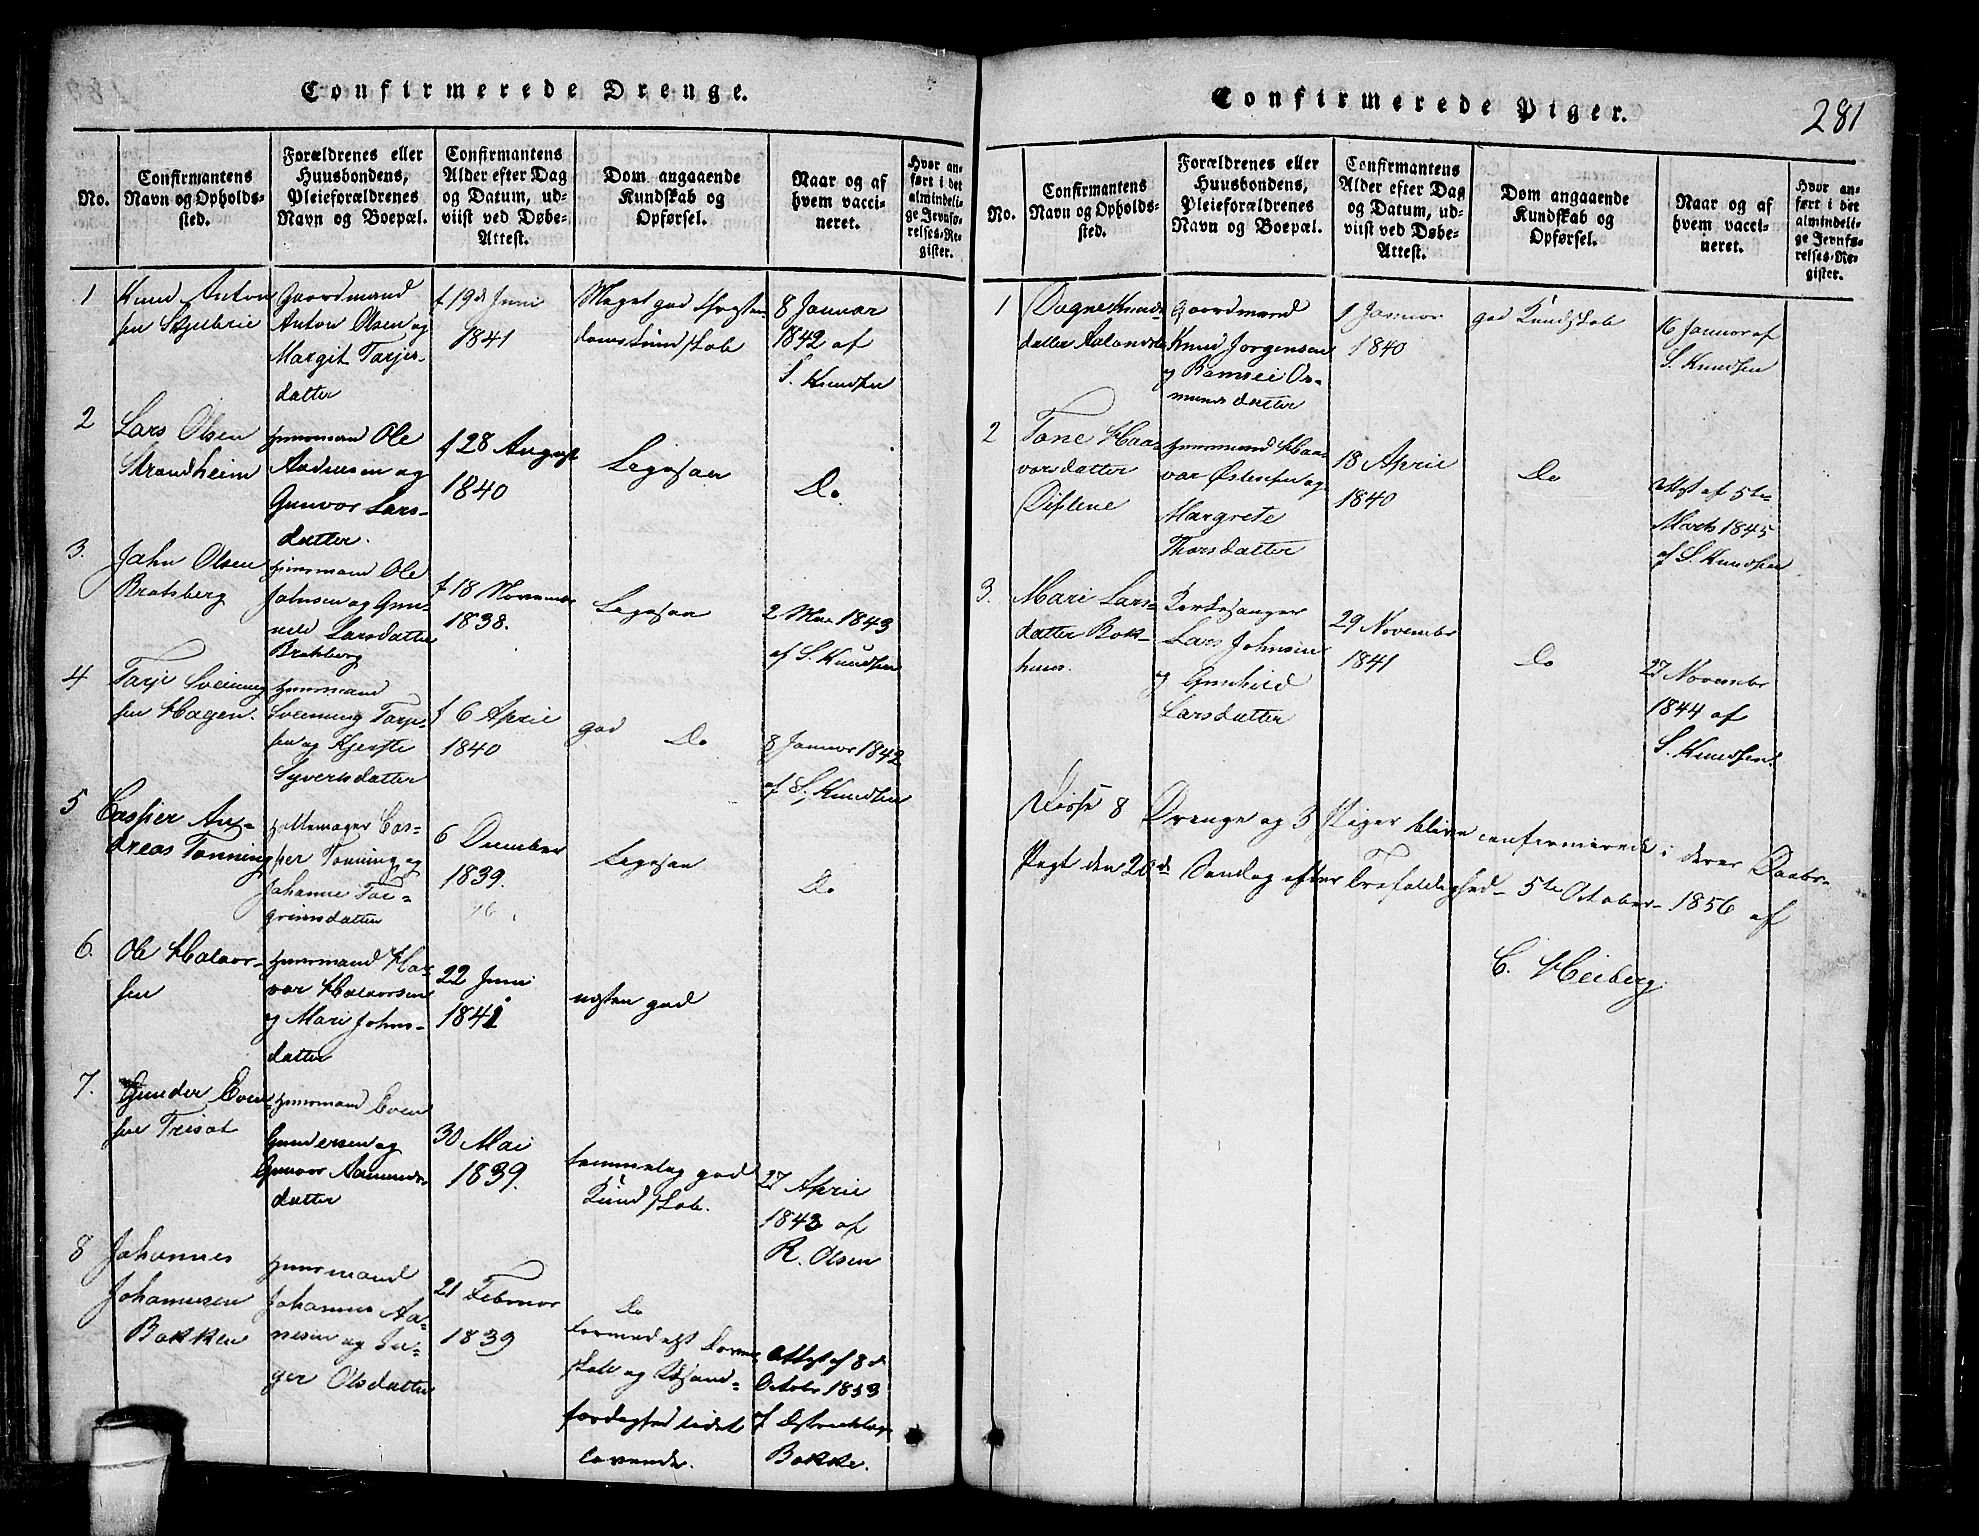 Confirmerede Drenge.
No.
Confirmantens
Navn og Opholds-
sted.
Forældrenes eller
Huusbondens,
Pleieforældrenes
Navn og Boepæl.
Confirmantens
Alder efter Dag
og Datum, ud-
viist ved Døbe-
Attest.
Dom angaaende
Kundskab og
Opførsel.
Naar og af
hvem vacci-
neret.
Hvor an-
ført i det
almindeli-
ge Jevnfø-
relses-Re-
gister.
1
Knud Anton
sen
Gaardmand
Anton Olsen og
Margit Tarjes-
datter
f 19de Juni
1841
Meget god Christen
doms Kundskab
8 Januar
1842 af
S. Knudsen
2
Lars Olsen
Strandheim
Huusmand Ole
Andersen og
Gunvor Lars-
datter.
f 28 August
1840
Ligesaa
Do
3.
John Olsen
Bratsberg
Huusmand Ole
Johnsen og Gun-
nild Larsdatter
Bratsberg
f 18 November
1838.
Ligesaa
2 Mai 1843
af S. Knudsen
4
Tarje Sveinung
sen Hagen.
Huusmand
Sveinung Tarje-
sen og Kjersti
Syversdatter
f 6 April
1840
god Do
8 Januar 1842
af S. Knudsen
5
Casper An-
dreas Tonning
Hattemager Cas-
per Tonning og
Johanne Tor-
greimsdatter
6 December
1839.
Ligesaa
Do
6.
Ole Halvor-
sen
Huusmand Hal-
vor Halvorsen
og Mari Johns-
datter
22 Juni
1841
næsten god
7.
Gunder Even-
sen Trisæt
Huusmand Even
Gundersen og
Gunvor Aanunds-
datter
30 Mai
1839.
temmelig god
Kundskab.
27 April
1843 af
R. Olsen
8
Johannes
Johannesen
Bakken
Huusmand
Johannes Aa-
nesen og In-
ger Olsdatter
21 Februar
1839
Do
lovende.
Attest af 8de
October 1853
af
Bakke.
Confirmerede Piger.
281
No.
Confirmantens
Navn og Opholds-
sted.
Forældrenes eller
Huusbondens,
Pleieforældrenes
Navn og Boepæl.
Confirmantens
Alder efter Dag
og Datum, ud-
viist ved Døbe-
Attest.
Dom angaaende
Kundskab og
Opførsel.
Naar og af
hvem vacci-
neret.
Hvor an-
ført i det
almindeli-
ge Jevnfø-
relses-Re-
gister.
1
Dagne Knuds-
datter
Gaardmand
Knud Jorgensen
og Ramsei Os-
munds datter
1 Januar
1840
god Kundskab
16 Januar af
S. Knudsen
2
Tone Haa-
vorsdatter
Huusmand Haa-
var Østensen og
Margrete
Thorsdatter
18 April
1840
Do
Attest af 5te
Marts 1845
af S. Knudsen
3.
Mari Lars-
datter Bak-
huus.
Kirkesanger
Lars Johnsen
og Gunhild
Larsdatter
29 November
1841
Do
27 November
1844 af
S. Knudsen.
Disse 8 Drenge og 3 Piger bleve confirmerede i deres Daabs-
Pagt den 20de Søndag efter Trefoldighed 5te October 1856 af
C. Heiberg